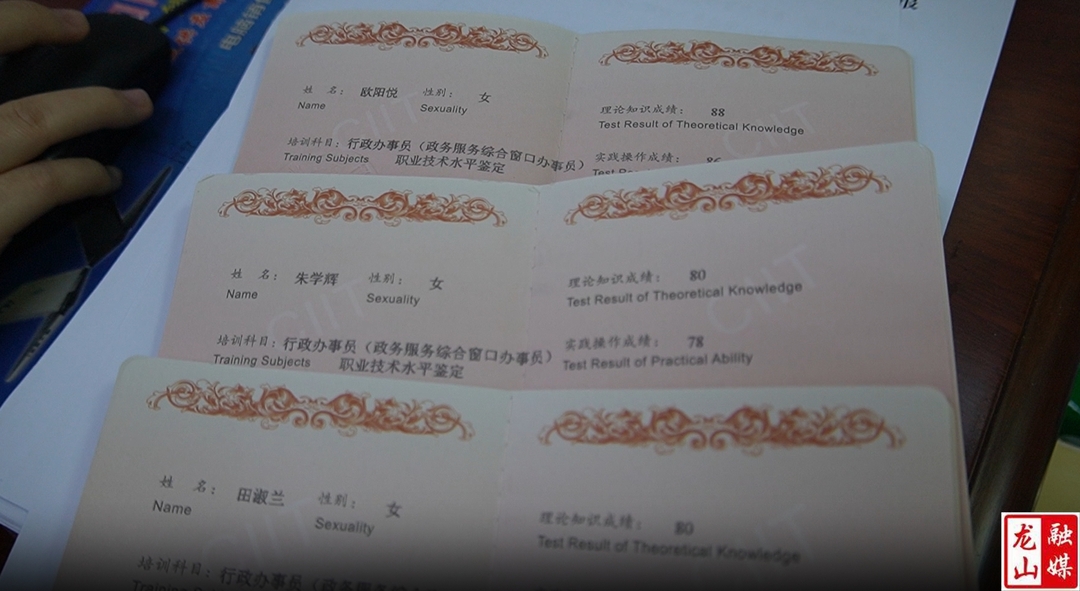 姓 名： 欧阳悦 性别： 女
Name Sexuality
培训科目：行政办事员（政务服务综合窗口办事员）
Training Subjects 职业技术水平鉴定
理论知识成绩： 88
Test Result of Theoretical Knowledge
实践操作成绩： 86
姓 名： 朱学辉 性别： 女
Name Sexuality
培训科目：行政办事员（政务服务综合窗口办事员）
Training Subjects 职业技术水平鉴定
理论知识成绩： 80
Test Result of Theoretical Knowledge
实践操作成绩： 78
Test Result of Practical Ability
姓 名： 田淑兰 性别： 女
Name Sexuality
培训科目：行政办事员（政务服务综
Training Subjects
理论知识成绩： 80
Test Result of Theoretical Knowledge
CIIT
龙山
融媒